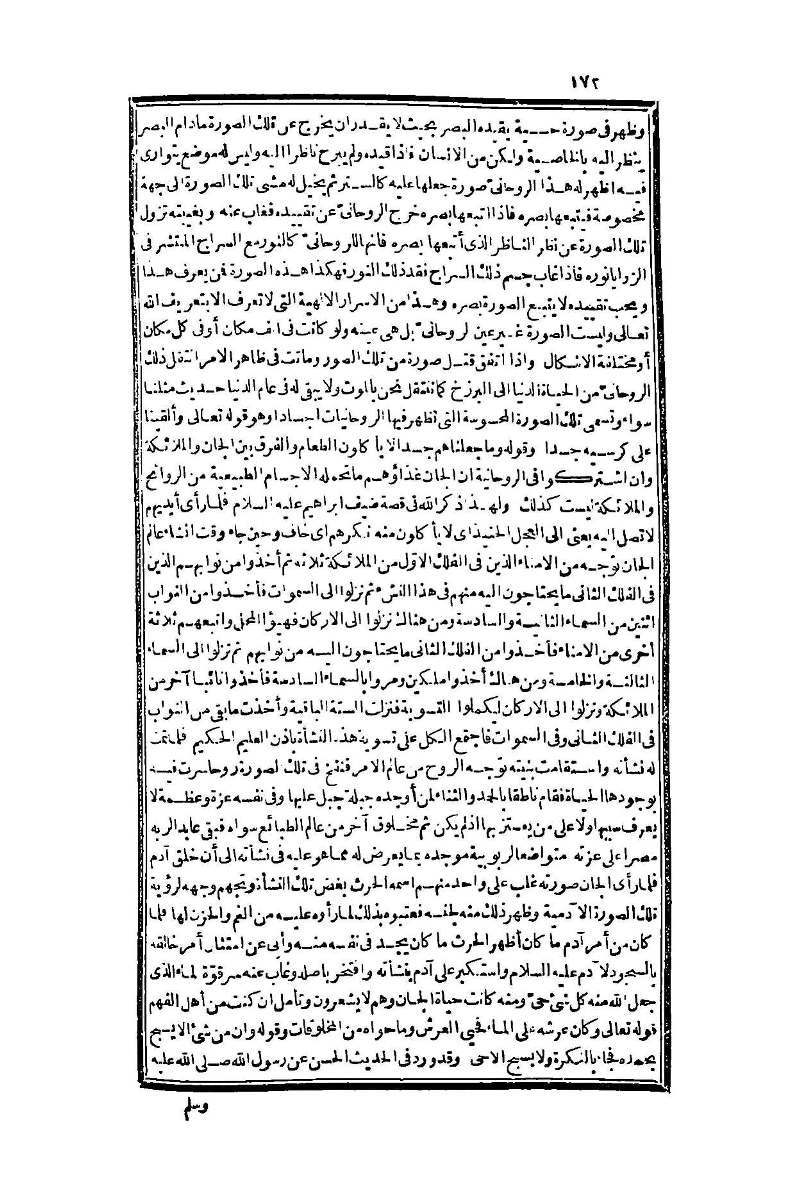 ١٧٢
وظهر فى صورة حسية يقيده البصر بحيث لا يقدر ان يخرج عن تلك الصورة مادام البصر
ينظر اليه بالخاصية ولكن من الانسان فاذا قيده ولم يبرح ناظرا اليه وليس له موضع يتوارى
فيه اظهر له هذا الروحانى صورة جعلها عليه كالستر ثم يخيل له مشى تلك الصورة الى جهة
مخصوصة فيتبعها بصره فاذا اتبعها بصره خرج الروحانى عن تقييده فغاب عنه وبغيبته تزول
تلك الصورة عن نظر الناظر الذى أتبعها بصره فانها للروحانى كالنور مع السراج المنتشر فى
الزوايا نوره فاذا غاب جسم ذلك السراج فقد ذلك النور فهكذا هذه الصورة فمن يعرف هذا
ويحب تقييده لا يتبع الصورة بصره وهذا من الاسرار الالهية التى لا تعرف الا بتعريف الله
تعالى وليست الصورة غير عين الروحانى بل هى عينه ولو كانت فى الف مكان أو فى كل مكان
أو مختلفة الاشكال واذا اتفق قتل صورة من تلك الصور وماتت فى ظاهر الامر انتقل ذلك
الروحانى من الحياة الدنيا الى البرزخ كما ننتقل نحن بالموت ولا يبقى له فى عالم الدنيا حديث مثلنا
سواء وتسمى تلك الصورة المحسوسة التى تظهر فيها الروحانيات اجسادا وهو قوله تعالى وألقينا
على كرسيه جسدا وقوله وما جعلناهم جسدا لا يأكلون الطعام والفرق بين الجان والملائكة
وان اشتركوا فى الروحانية ان الجان غذاؤهم ما تحمله الاجسام الطبيعية من الروائح
والملائكة ليست كذلك ولهذا ذكر الله فى قصة ضيف ابراهيم عليه السلام فلما رأى أيديهم
لا تصل اليه يعنى الى العجل الحنيذ اى لا يأكلون منه نكرهم اى خاف وحين جاء وقت انشاء عالم
الجان توجه من الامناء الذين فى الفلك الاول من الملائكة ثلاثة ثم أخذوا من نوابهم الذين
فى الفلك الثانى ما يحتاجون اليه منهم فى هذا النشء ثم نزلوا الى السموات فأخذوا من النواب
اثنين من السماء الثانية والسادسة ومن هنالك نزلوا الى الاركان فهيؤا المحل واتبعهم ثلاثة
أخرى من الامناء فأخذوا من الفلك الثانى ما يحتاجون اليه من نوابهم ثم نزلوا الى السماء
الثالثة والخامسة ومن هنالك أخذوا ملكين ومروا بالسماء السادسة فأخذوا نائبا آخر من
الملائكة ونزلوا الى الاركان ليكملوا التسوية فنزلت الستة الباقية وأخذت ما بقى من النواب
فى الفلك الثانى وفى السموات فاجتمع الكل على تسوية هذه النشأة باذن العليم الحكيم فلما تمت
له نشأته واستقامت بنيته توجه الروح من عالم الامر فنفخ فى تلك الصورة روحا سرت فيه
بوجودها الحياة فقام ناطقا بالحمد والثناء لمن أوجده جبلة جبل عليها وفى نفسه عزة وعظمة لا
يعرف سببها ولا على من يعتز بها اذ لم يكن ثم مخلوق آخر من عالم الطبائع سواه فبقى عابدا لربه
مصرا على عزته متواضعا لربوبية موجده بما يعرض له مما هو عليه فى نشأته الى أن خلق آدم
فلما رأى الجان صورته غلب على واحد منهم اسمه الحرث بغض تلك النشأة وتجهم وجهه لرؤية
تلك الصورة الآدمية وظهر ذلك منه لجنسه فعتبوه بذلك لما رأوه عليه من الغم والحزن لها فلما
كان من أمر آدم ما كان أظهر الحرث ما كان يجد فى نفسه منه وأبى عن امتثال أمر خالقه
بالسجود لآدم عليه السلام واستكبر على آدم بنشأته وافتخر باصله وغاب عنه سر قوة الماء الذى
جعل الله منه كل شئ حى ومنه كانت حياة الجان وهم لا يشعرون وتأمل ان كنت من أهل الفهم
قوله تعالى وكان عرشه على الماء فحيى العرش وما حواه من المخلوقات وقوله وان من شئ الا يسبح
بحمده فجاء بالنكرة ولا يسبح الا حى وقد ورد فى الحديث الحسن عن رسول الله صلى الله عليه
وسلم